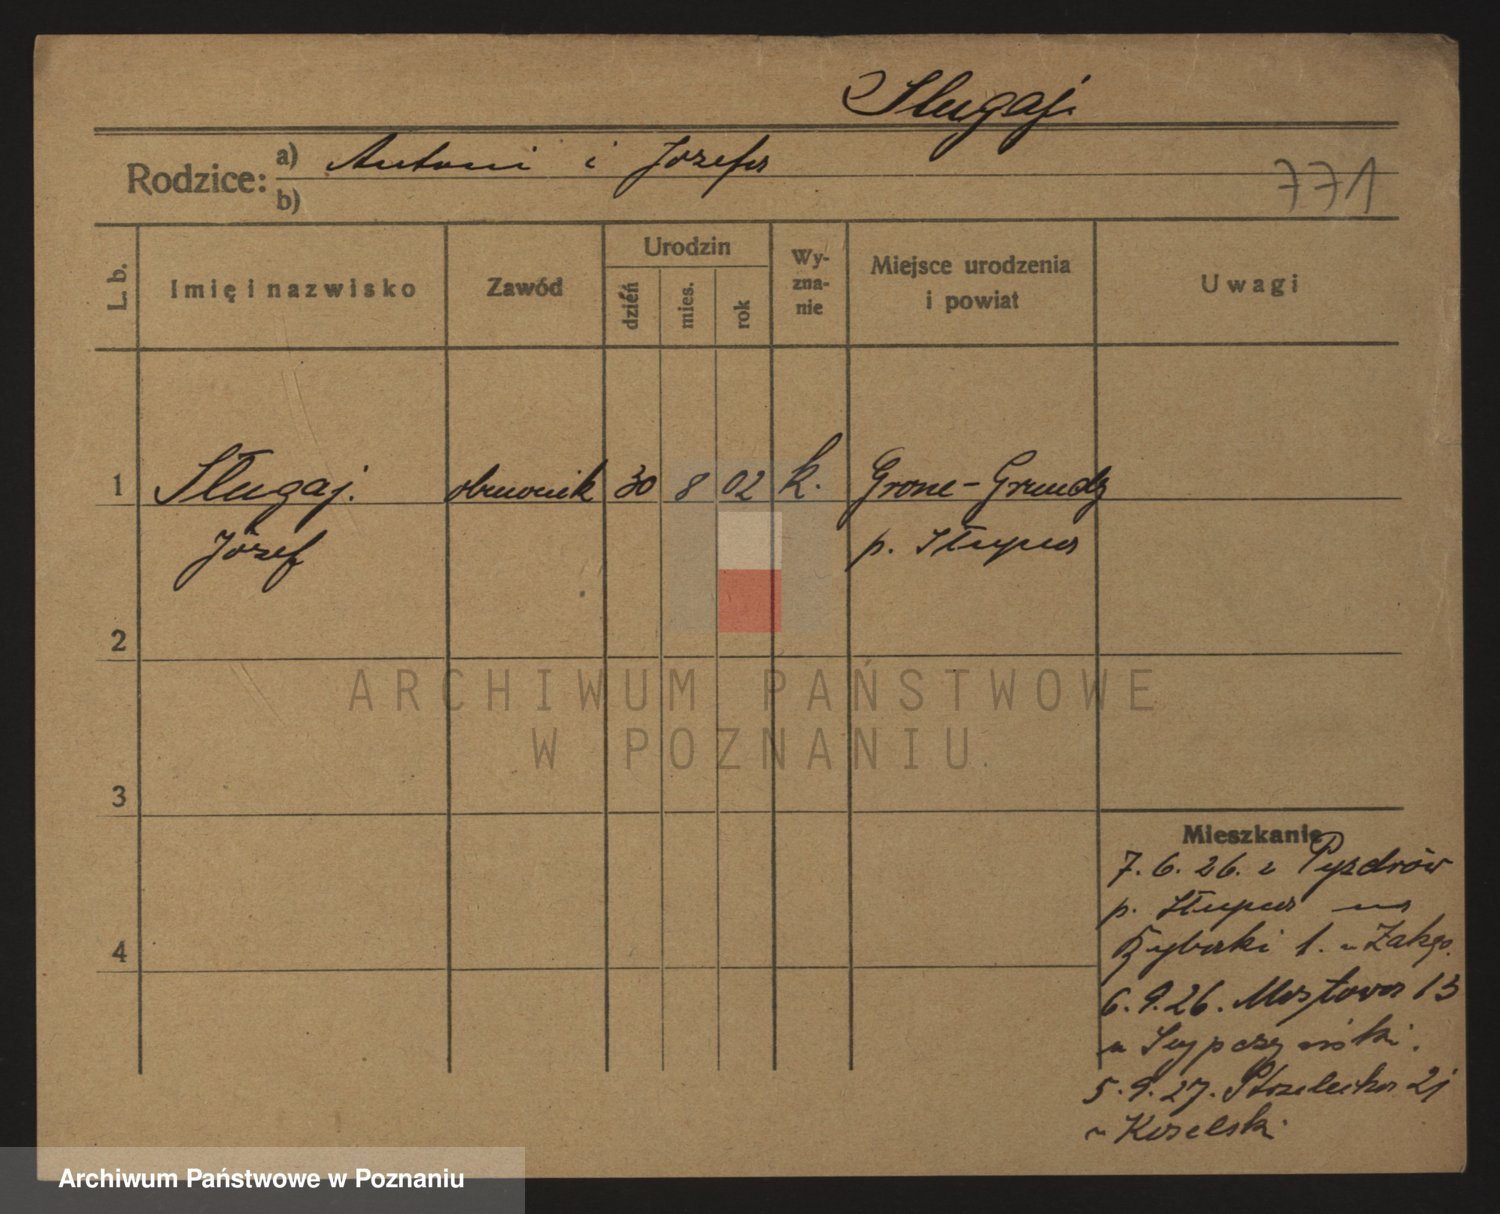 Sługaj.
Rodzice: a) Antoni i Józefa
b)
771
L. b. Imię i nazwisko Zawód Urodzin dzień mies. rok Wyznanie Miejsce urodzenia i powiat Uwagi
1 Sługaj. obuwnik 30 8 02 k. Grone-Grundz
Józef p. Słupca
2
ARCHIWUM PAŃSTWOWE
W POZNANIU
3
Mieszkanie
7.6.26. z Pyzdrów
p. Słupca na
Rybaki 1. u
4
6.9.26. Mostowa 13
u
5.9.27. Strzelecka 21
u Koselski.
Archiwum Państwowe w Poznaniu